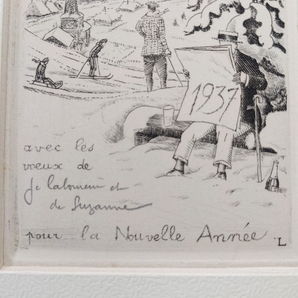 1937
avec les
voeux de
Je Laboureur et
de Suzanne
pour la Nouvelle Année
L